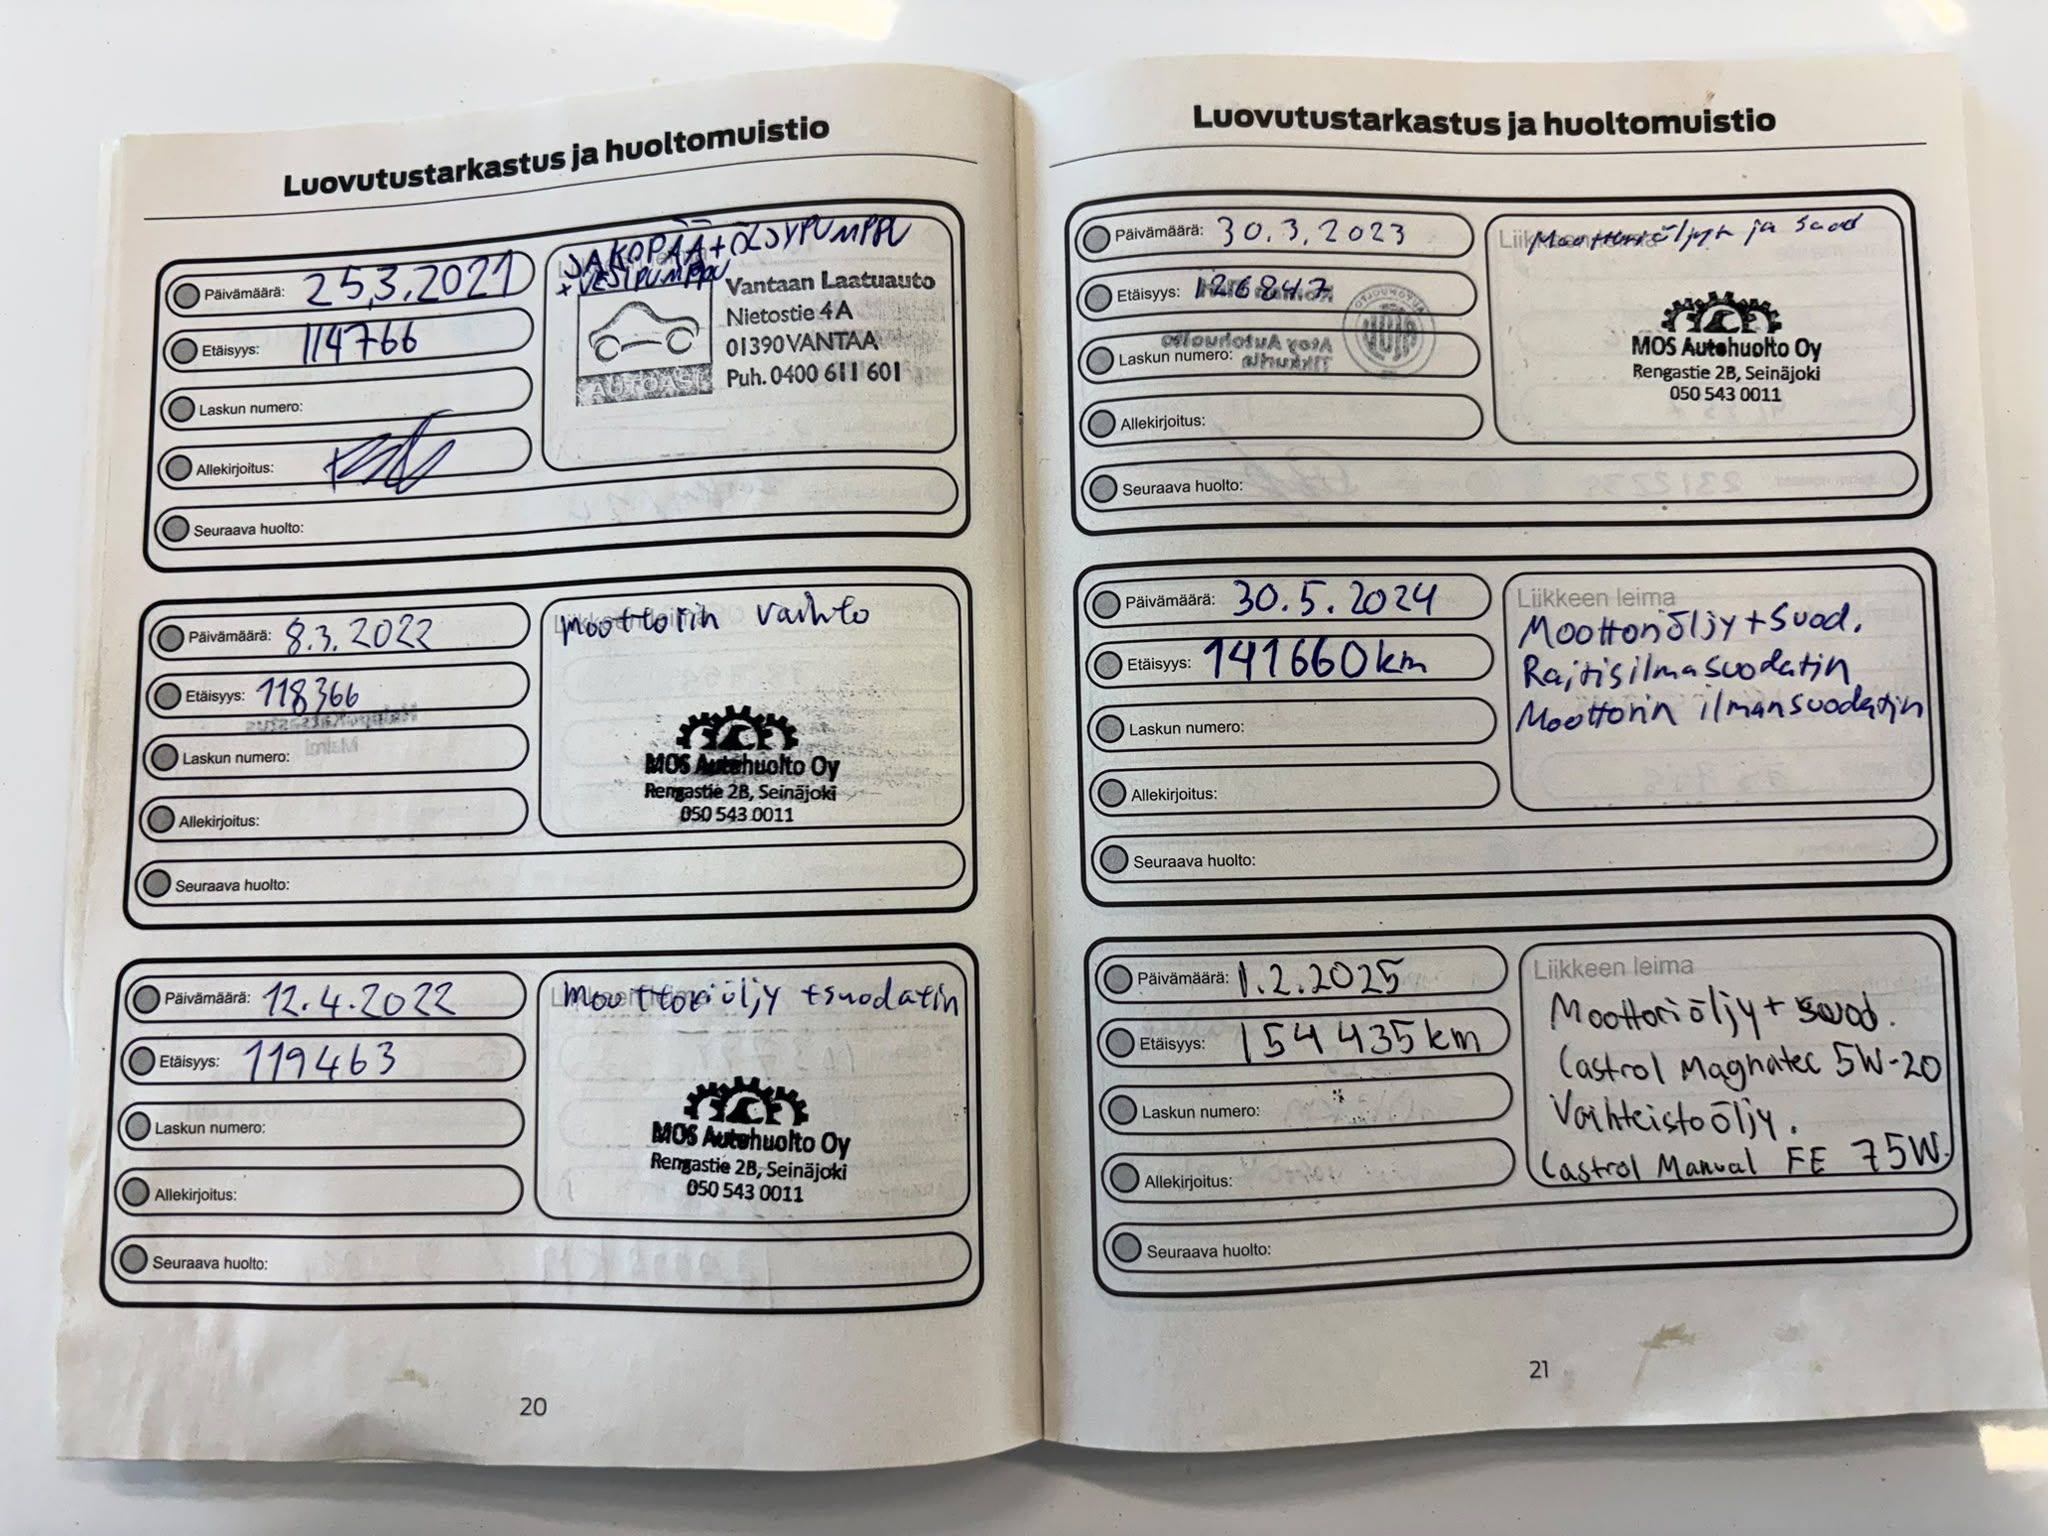 Luovutustarkastus ja huoltomuistio
Päivämäärä: 25.3.2021
Etäisyys: 114766
Laskun numero:
Allekirjoitus:
Seuraava huolto:
JAKOPÄÄ + ÖLJYPUMPPU
+ VESIPUMPPU
AUTOASI
Vantaan Laatuauto
Nietostie 4 A
01390 VANTAA
Puh. 0400 611 601
Päivämäärä: 8.3.2022
Etäisyys: 118366
Laskun numero:
Allekirjoitus:
Seuraava huolto:
Liikkeen leima
Moottorin vaihto
MOS Autohuolto Oy
Rengastie 2B, Seinäjoki
050 543 0011
Päivämäärä: 12.4.2022
Etäisyys: 119463
Laskun numero:
Allekirjoitus:
Seuraava huolto:
Liikkeen leima
Moottoriöljy + suodatin
MOS Autohuolto Oy
Rengastie 2B, Seinäjoki
050 543 0011
20
Luovutustarkastus ja huoltomuistio
Päivämäärä: 30.3.2023
Etäisyys: 126847
Laskun numero:
Allekirjoitus:
Seuraava huolto:
Liikkeen leima
Moottoriöljyt ja suod
MOS Autohuolto Oy
Rengastie 2B, Seinäjoki
050 543 0011
Päivämäärä: 30.5.2024
Etäisyys: 141660 km
Laskun numero:
Allekirjoitus:
Seuraava huolto:
Liikkeen leima
Moottoriöljy + suod.
Raitisilmasuodatin
Moottorin ilmansuodatin
Päivämäärä: 1.2.2025
Etäisyys: 154 435 km
Laskun numero:
Allekirjoitus:
Seuraava huolto:
Liikkeen leima
Moottoriöljy + suod.
Castrol Magnatec 5W-20
Vaihteistoöljy.
Castrol Manual FE 75W.
21